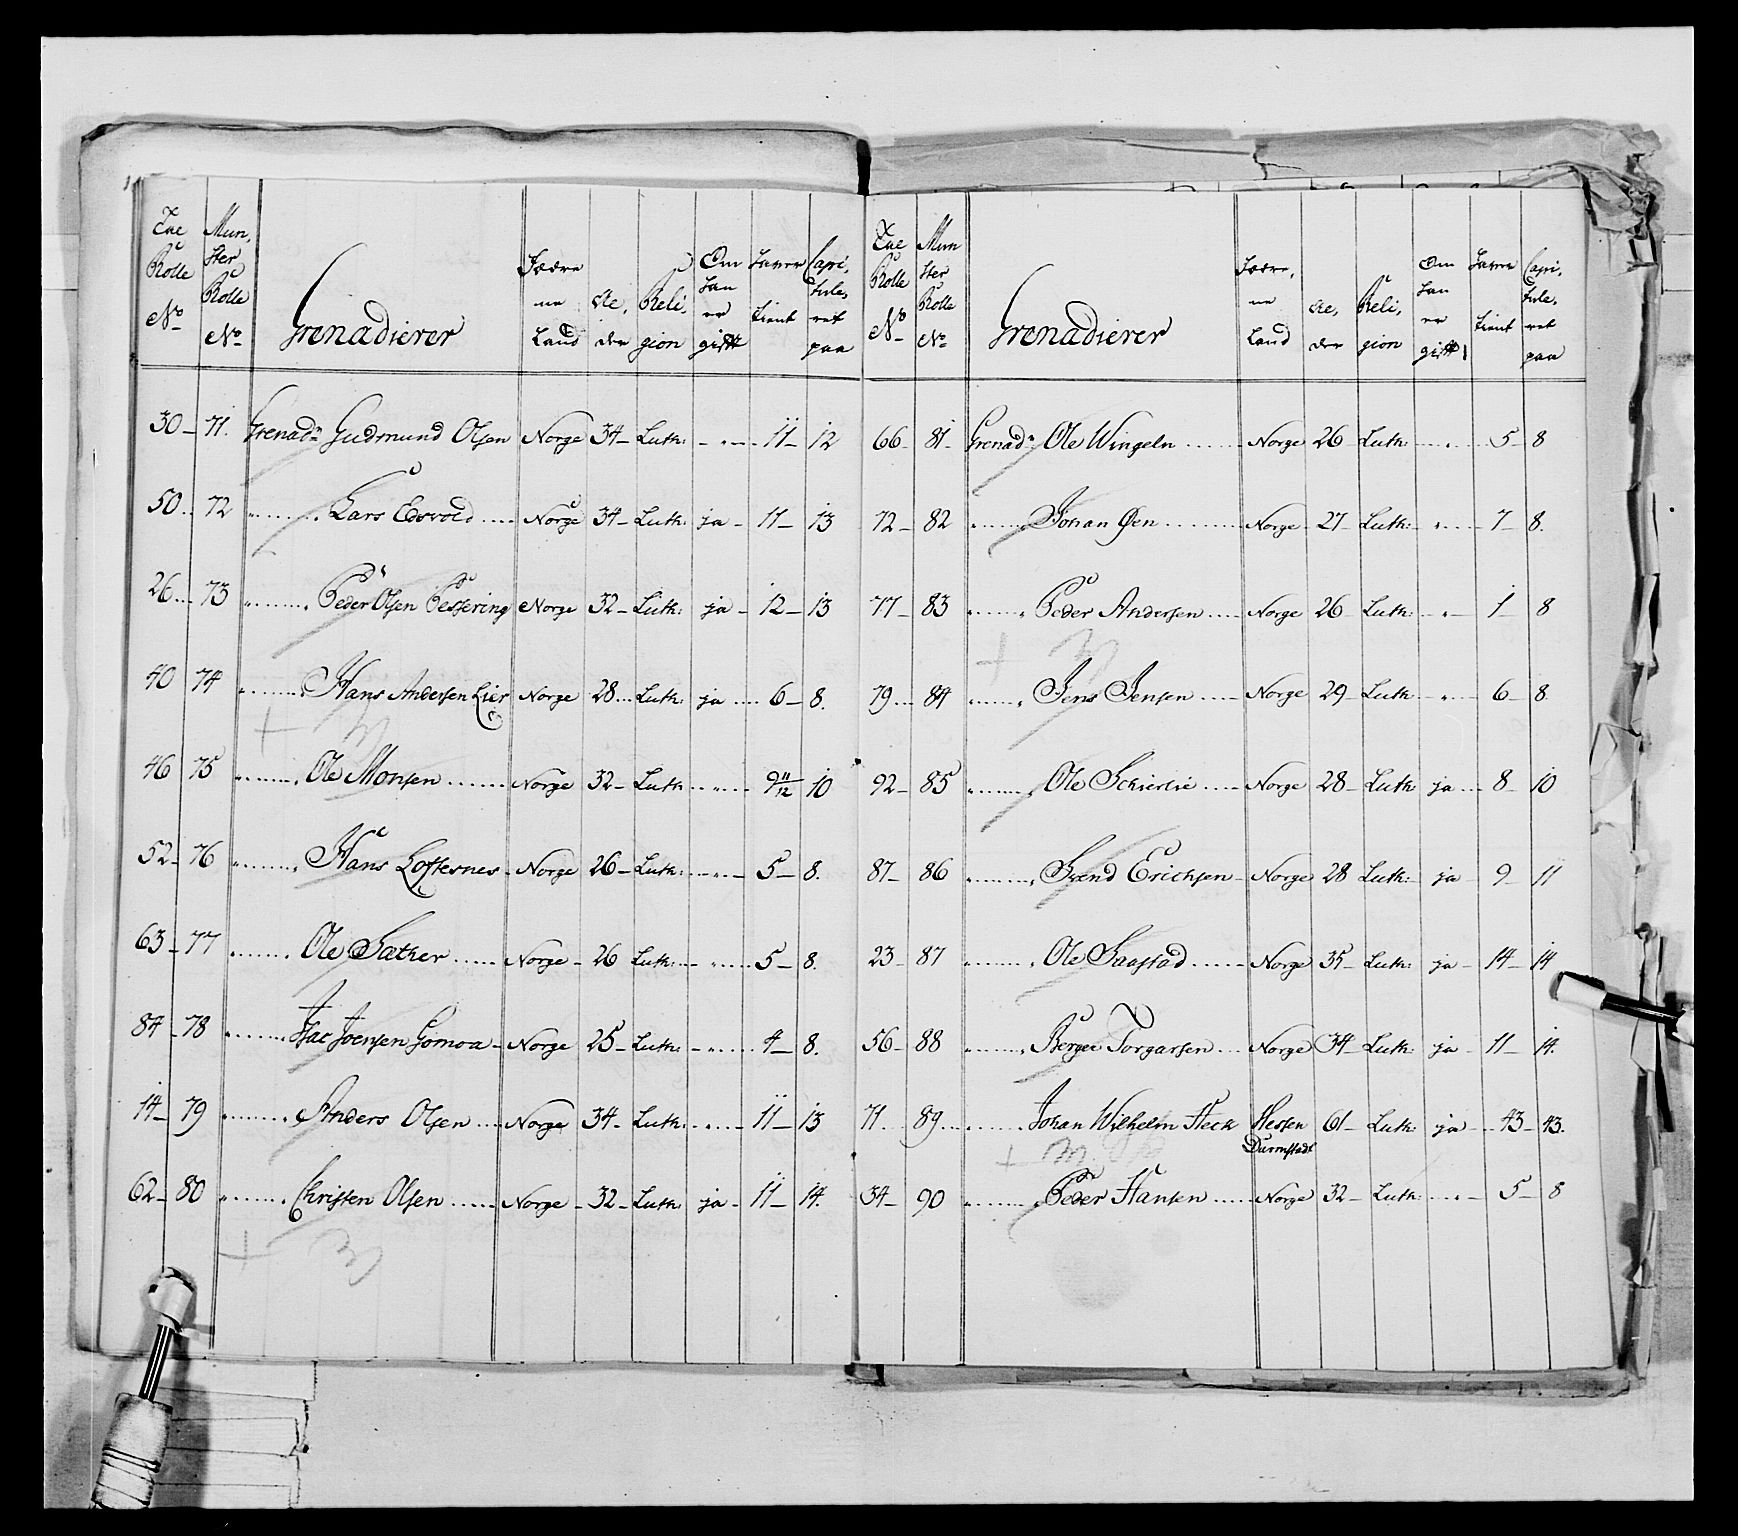 Rolle No Mun, ster Rolle No Grenadierer Fædre ne Land Al, der Reli, gion Om han er gift har tient Capi, tule, ret paa
30 71. Grenadr Gudmund Olsen Norge 34 Luth: " 11 12
50 72 " Lars Edsvold Norge 34 Luth: ja 11 13
26 73 " Peder Olsen Norge 32 Luth: ja 12 13
40 74 " Hans Andersen Lier Norge 28 Luth: ja 6 8.
46 75 " Ole Monsen Norge 32 Luth " 9 11/12 10
52 76 " Hans Loftesnes Norge 26 Luth: " 5 8.
63 77 " Ole Sæther Norge 26 Luth: " 5 8.
84 78 " Joensen Norge 25 Luth: " 4 8.
14 79 " Anders Olsen Norge 34 Luth: " 11 13
62 80 " Christen Olsen Norge 32 Luth: ja 11 14.
Rolle No Mun ster Rolle No Grenadierer Fædre, ne Land Al, der Reli, gion Om han er gift har tient Capi, tule, ret paa
66 81 Grenadr Ole Wingeln Norge 26 Luth " 5 8
72 82 " Johan Øen Norge 27 Luth: " 7 8.
77 83 " Peder Andersen Norge 26 Luth: " 1 8
79 84 " Jens Jensen Norge 29 Luth " 6 8
92 85 " Ole Schierlie Norge 28 Luth ja 8 10
87 86 " Svend Erichsen Norge 28 Luth: ja 9 11
23 87 " Ole Saastad Norge 35 Luth: ja 14 14
56 88 " Torgarsen Norge 34 Luth: ja 11 14.
71. 89 " Johan Wilhelm Heck Hessen Darmstadt 61 Luth: ja 43 43.
34 90 " Peder Hansen Norge 32 Luth: " 5 8